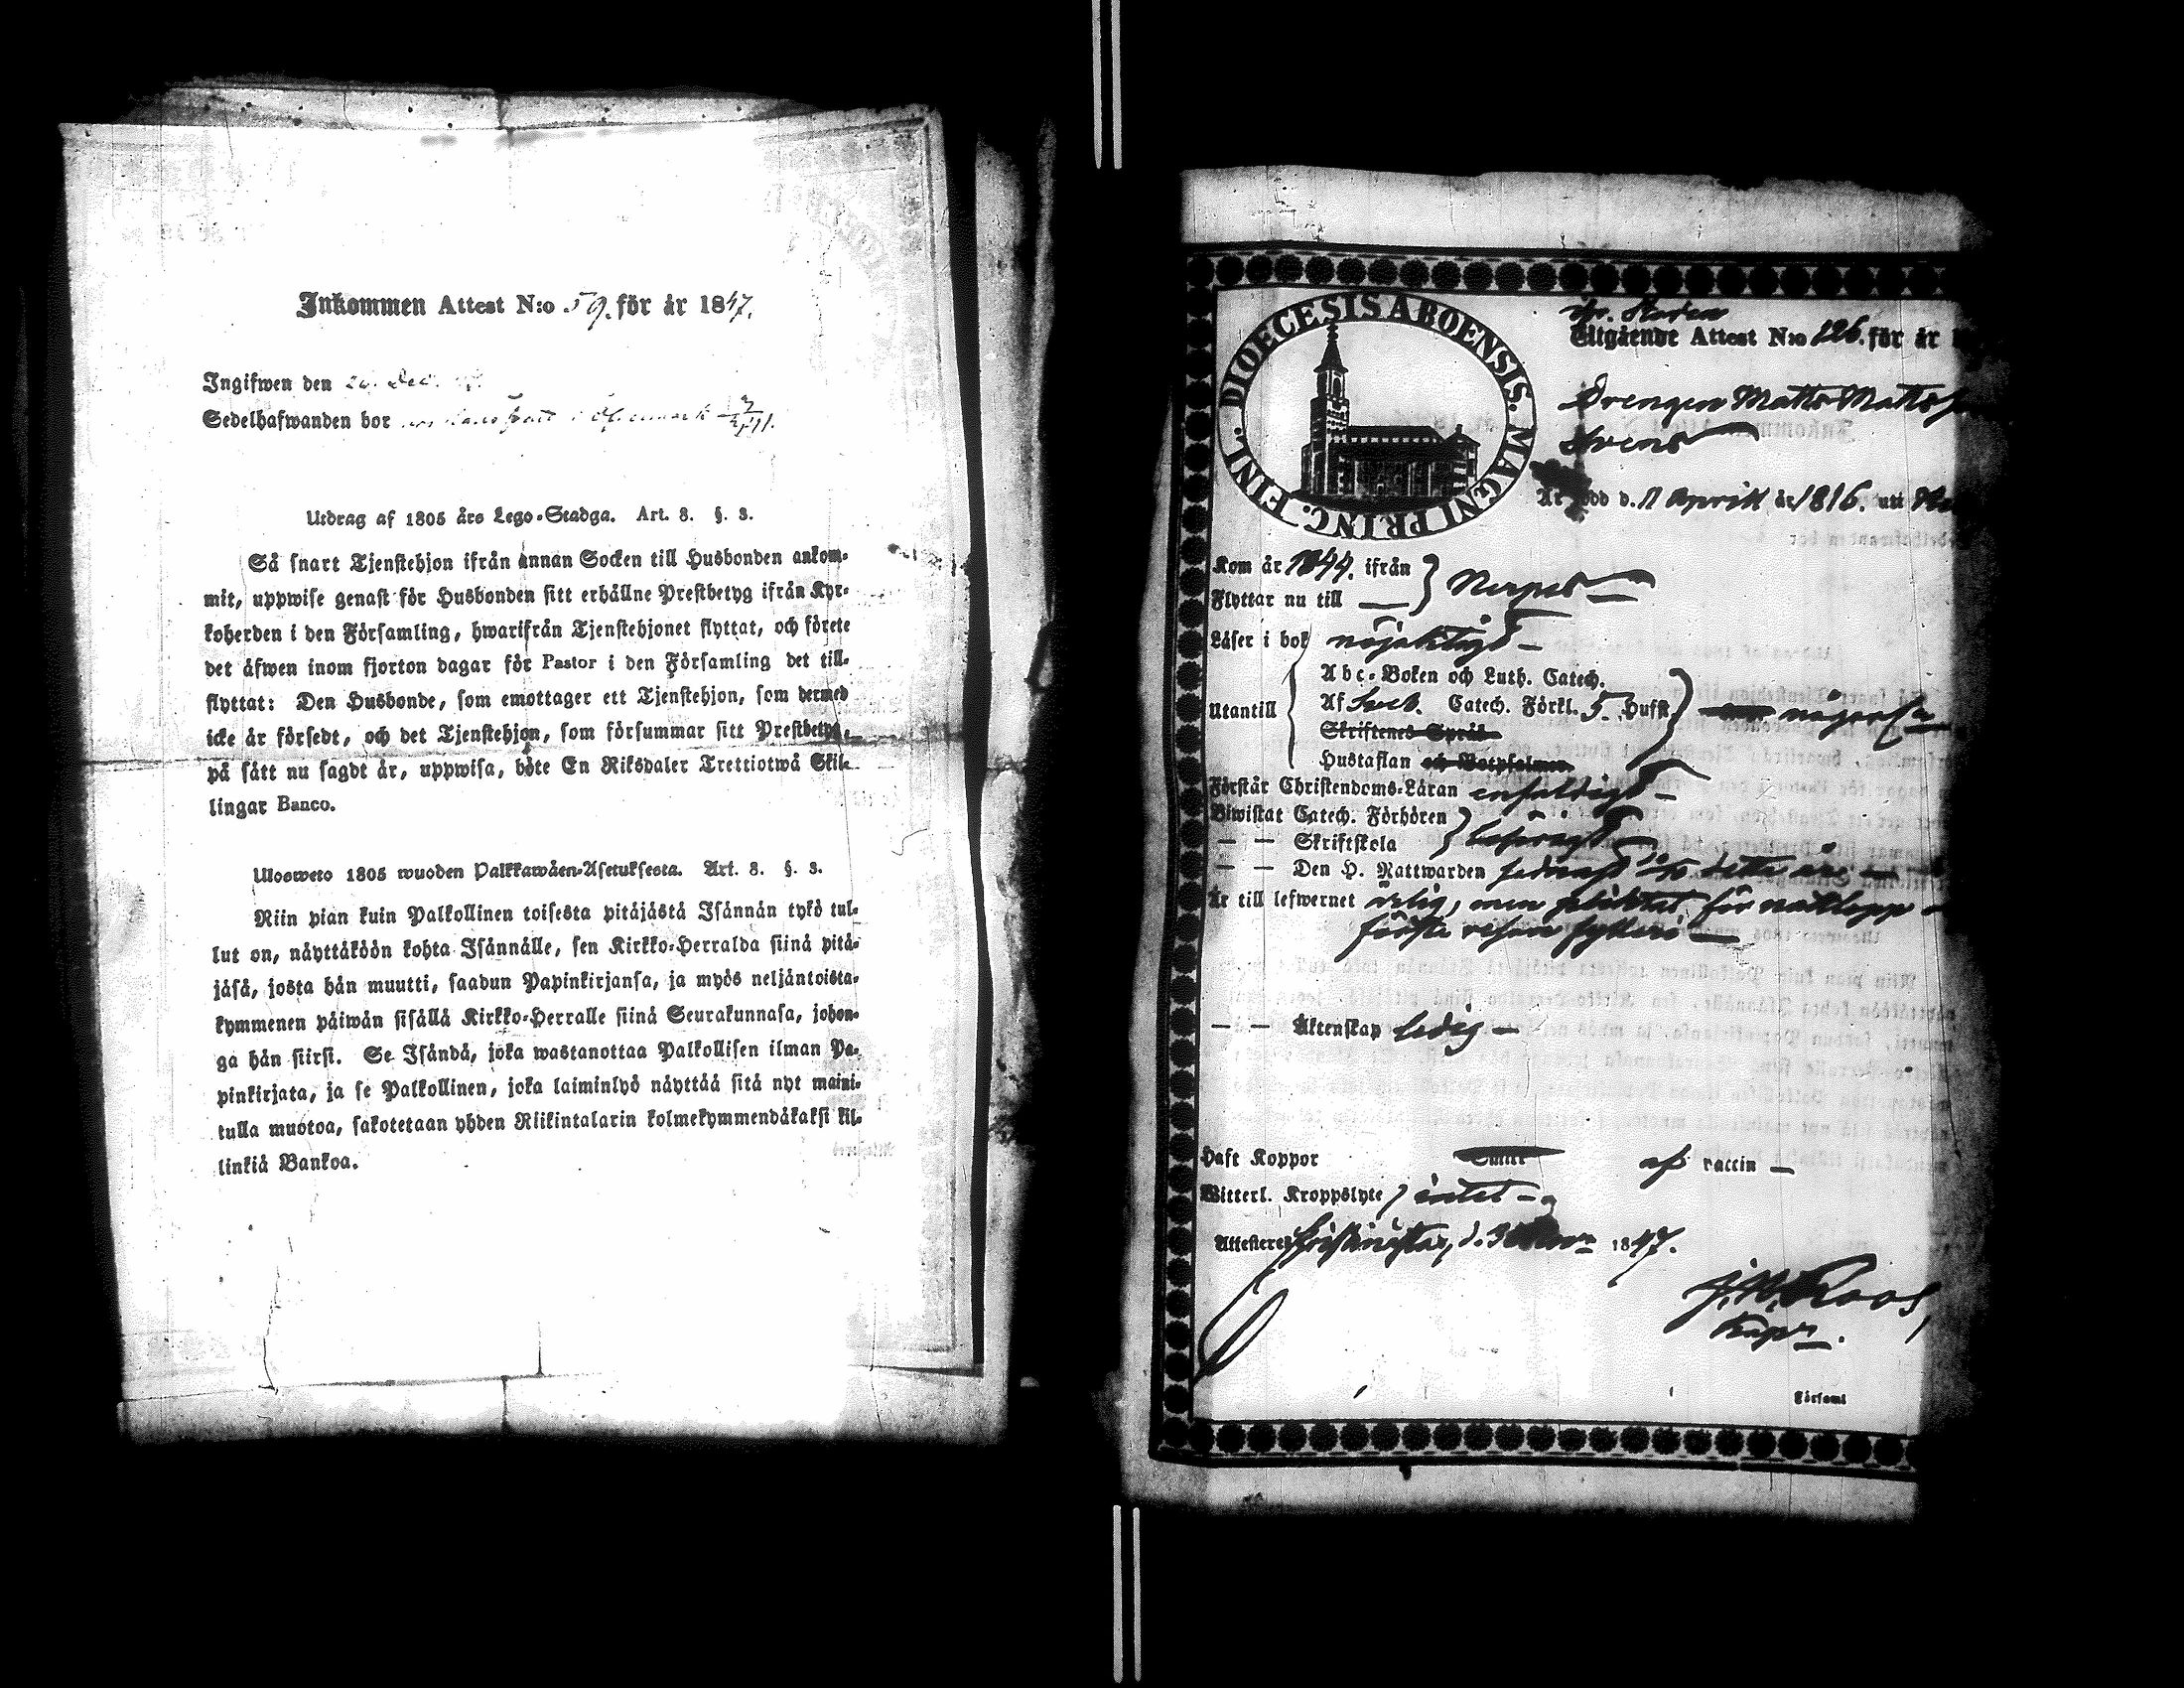 Inkommen Attest N:o 59. för år 1847.
Ingifwen den 20. Dec.
Sedelhafwanden bor
Utdrag af 1805 års Lego-Stadga. Art. 8. §. 3.
Så snart Tjenstehjon ifrån annan Socken till Husbonden ankom-
mit, uppwise genast för Husbonden sitt erhållne Prestbetyg ifrån Kyr-
koherden i den Församling, hwarifrån Tjenstehjonet flyttat, och förete
det äfwen inom fjorton dagar för Pastor i den Församling det till-
flyttat: Den Husbonde, som emottager ett Tjenstehjon, som dermed
icke är försedt, och det Tjenstehjon, som försummar sitt Prestbetyg,
på sätt nu sagdt är, uppwisa, böte En Riksdaler Trettiotwå Skil-
lingar Banco.
Ulosweto 1805 wuoden Palkkawäen-Asetuksesta. Art. 8. §. 3.
Niin pian kuin Palkollinen toisesta pitäjästä Isännän tykö tul-
lut on, näyttäköön kohta Isännälle, sen Kirkko-Herralda siinä pitä-
jäsä, josta hän muutti, saadun Papinkirjansa, ja myös neljäntoista-
kymmenen päiwän sisällä Kirkko-Herralle siinä Seurakunnasa, johon-
ga hän siirsi. Se Isändä, joka wastanottaa Palkollisen ilman Pa-
pinkirjata, ja se Palkollinen, joka laiminlyö näyttää sitä nyt maini-
tulla muotoa, sakotetaan yhden Riikintalarin kolmekymmendäkaksi kil-
linkiä Bankoa.
DIOECESIS ABOENSIS. MAGNI PRINC. FINL.
fr. Staden
Utgående Attest N:o 126. för år
Drengen Matts Matts
Svens
Är född d. 11 April år 1816. uti
Kom år 1844. ifrån
Flyttar nu till — Nerpes
Läser i bok nöjaktigt
Abc-Boken och Luth. Catech.
Utantill Af Sveb. Catech. Förkl. 5. Hufst. någorl.
Skriftenes Språk
Hustaflan och Botpsalmer
Förstår Christendoms-Läran enfaldigt
Biwistat Catech. Förhören
— — Skriftskola
— — Den H. Nattwarden sednast detta år
Är till lefwernet ärlig, men pliktat för
första resan fylleri
— — Äktenskap ledig
Haft Koppor af vaccin
Witterl. Kroppslyte intet
Attesterar Kristinestad, d. 30 1847.
J. W. Roos,
Kapn.
Församl